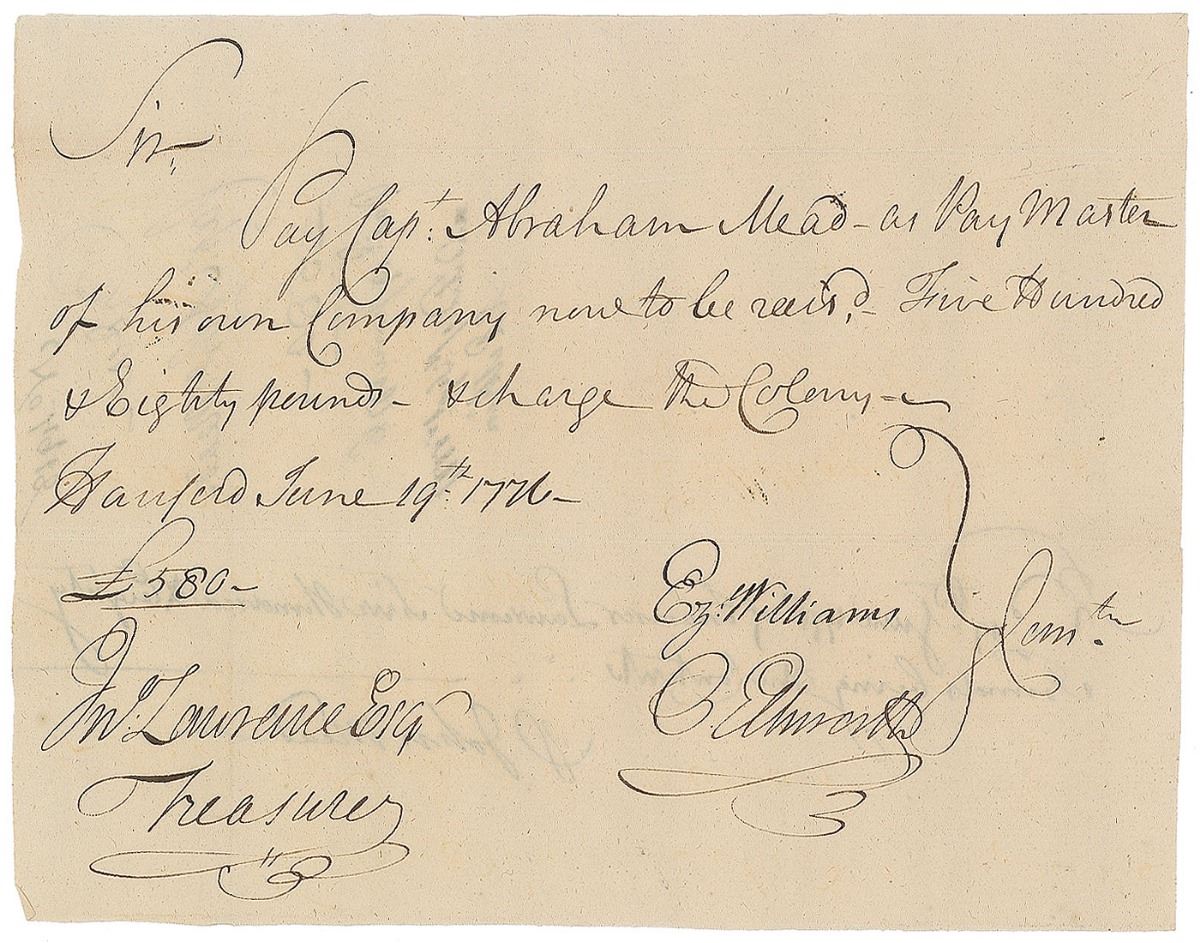 Sir,
Pay Capt. Abraham Mead - as Pay Master
of his own Company now to be rais'd, - Five Hundred
& Eighty pounds - & charge the Colony -
Hartford June 19th. 1776 -
£580 -
Ez. Williams
Comtee
O. Ellsworth
Jno. Lawrence Esqr
Treasurer